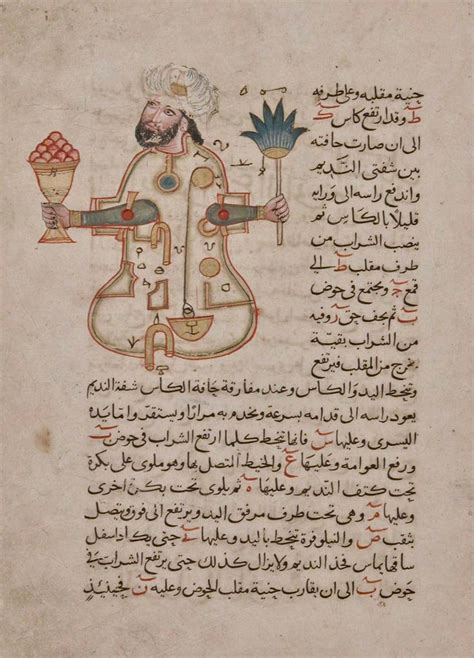 جنية مقلبه وعلى طرفه
ط وقد ارتفع كاس ك
الى ان صارت حافته
بين شفتى النديم
واندفع راسه الى ورايه
قليلا بالكاس ثم
ينصب الشراب من
طرف مقلب ط الى
قمع ج ويجتمع فى حوض
ب ثم يجف حق روفيه
من الشراب بقية
تخرج من المقلب فيرتفع
وتنحط اليد والكاس وعند مفارقة حافة الكاس شفة النديم
يعود راسه الى قدامه بسرعة ويخدم به مرارا ويستقر واما يده
اليسرى وعليها س فانها تنحط كلما ارتفع الشراب فى حوض ب
ورفع العوامة وعليها ع والخيط المتصل بها وهو ملوى على بكرة
تحت كتف النديم وعليها ه ثم يلوى تحت بكرة اخرى
وعليها م وهى تحت طرف مرفق اليد ويرتفع الى فوق ويتصل
بثقب ص والنيلوفرة تنحط باليد وعليها حتى يكاد اسفل
ساقها يماس فخذ النديم ولا يزال كذلك حتى يرتفع الشراب فى
حوض ب الى ان يقارب جنية مقلب الحوض وعليه ن فحينئذ